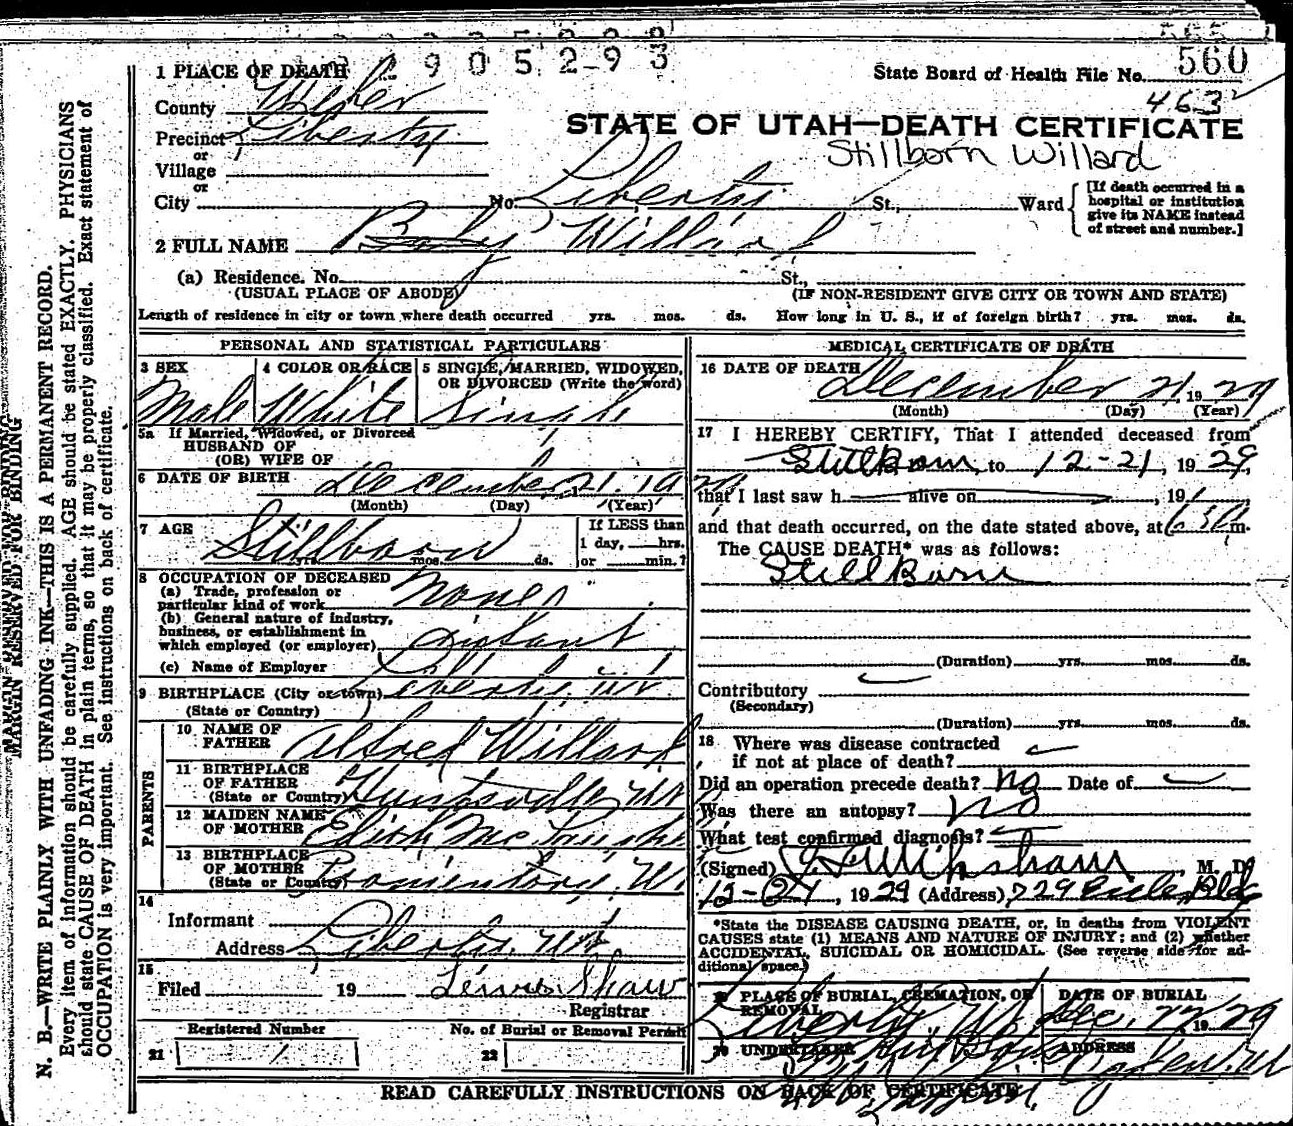 2905293
State Board of Health File No. 560
4632
STATE OF UTAH—DEATH CERTIFICATE
Stillborn Willard
1 PLACE OF DEATH
County Weber
Precinct Liberty
or
Village
or
City No. Liberty St., Ward
[If death occurred in a
hospital or institution
give its NAME instead
of street and number.]
2 FULL NAME Baby Willard
(a) Residence. No. St.,
(USUAL PLACE OF ABODE) (IF NON-RESIDENT GIVE CITY OR TOWN AND STATE)
Length of residence in city or town where death occurred yrs. mos. ds. How long in U. S., if of foreign birth? yrs. mos. ds.
PERSONAL AND STATISTICAL PARTICULARS
3 SEX 4 COLOR OR RACE 5 SINGLE, MARRIED, WIDOWED,
OR DIVORCED (Write the word)
Male White Single
5a If Married, Widowed, or Divorced
HUSBAND OF
(OR) WIFE OF
6 DATE OF BIRTH December 21. 1929
(Month) (Day) (Year)
7 AGE Stillborn
yrs. mos. ds.
If LESS than
1 day, hrs.
or min.?
8 OCCUPATION OF DECEASED
(a) Trade, profession or
particular kind of work None
(b) General nature of industry,
business, or establishment in
which employed (or employer) Infant
(c) Name of Employer
9 BIRTHPLACE (City or town) Liberty, Ut
(State or Country)
PARENTS
10 NAME OF
FATHER Alfred Willard
11 BIRTHPLACE
OF FATHER
(State or Country) Huntsville, Ut
12 MAIDEN NAME
OF MOTHER Edith
13 BIRTHPLACE
OF MOTHER
(State or Country) Promentory, Ut
14
Informant
Address Liberty, Ut
15
Filed 19 Shaw
Registrar
Registered Number No. of Burial or Removal Permit
21 1 22
MEDICAL CERTIFICATE OF DEATH
16 DATE OF DEATH December 21, 1929
(Month) (Day) (Year)
17 I HEREBY CERTIFY, That I attended deceased from
Stillborn, to 12-21, 1929,
that I last saw h alive on , 19
and that death occurred, on the date stated above, at m.
The CAUSE DEATH* was as follows:
Stillborn
(Duration) yrs. mos. ds.
Contributory
(Secondary)
(Duration) yrs. mos. ds.
18 Where was disease contracted
if not at place of death?
Did an operation precede death? No Date of
Was there an autopsy? No
What test confirmed diagnosis?
(Signed) M. D.
12-24, 1929 (Address) 729 Bldg
*State the DISEASE CAUSING DEATH, or, in deaths from VIOLENT
CAUSES state (1) MEANS AND NATURE OF INJURY; and (2) whether
ACCIDENTAL, SUICIDAL OR HOMICIDAL. (See reverse side for ad-
ditional space.)
19 PLACE OF BURIAL, CREMATION, OR
REMOVAL
DATE OF BURIAL
Liberty, Ut Dec, 22, 1929
20 UNDERTAKER ADDRESS
READ CAREFULLY INSTRUCTIONS ON BACK OF CERTIFICATE
MARGIN RESERVED FOR BINDING
N. B.—WRITE PLAINLY WITH UNFADING INK—THIS IS A PERMANENT RECORD.
Every item of information should be carefully supplied. AGE should be stated EXACTLY. PHYSICIANS
should state CAUSE OF DEATH in plain terms, so that it may be properly classified. Exact statement of
OCCUPATION is very important. See instructions on back of certificate.